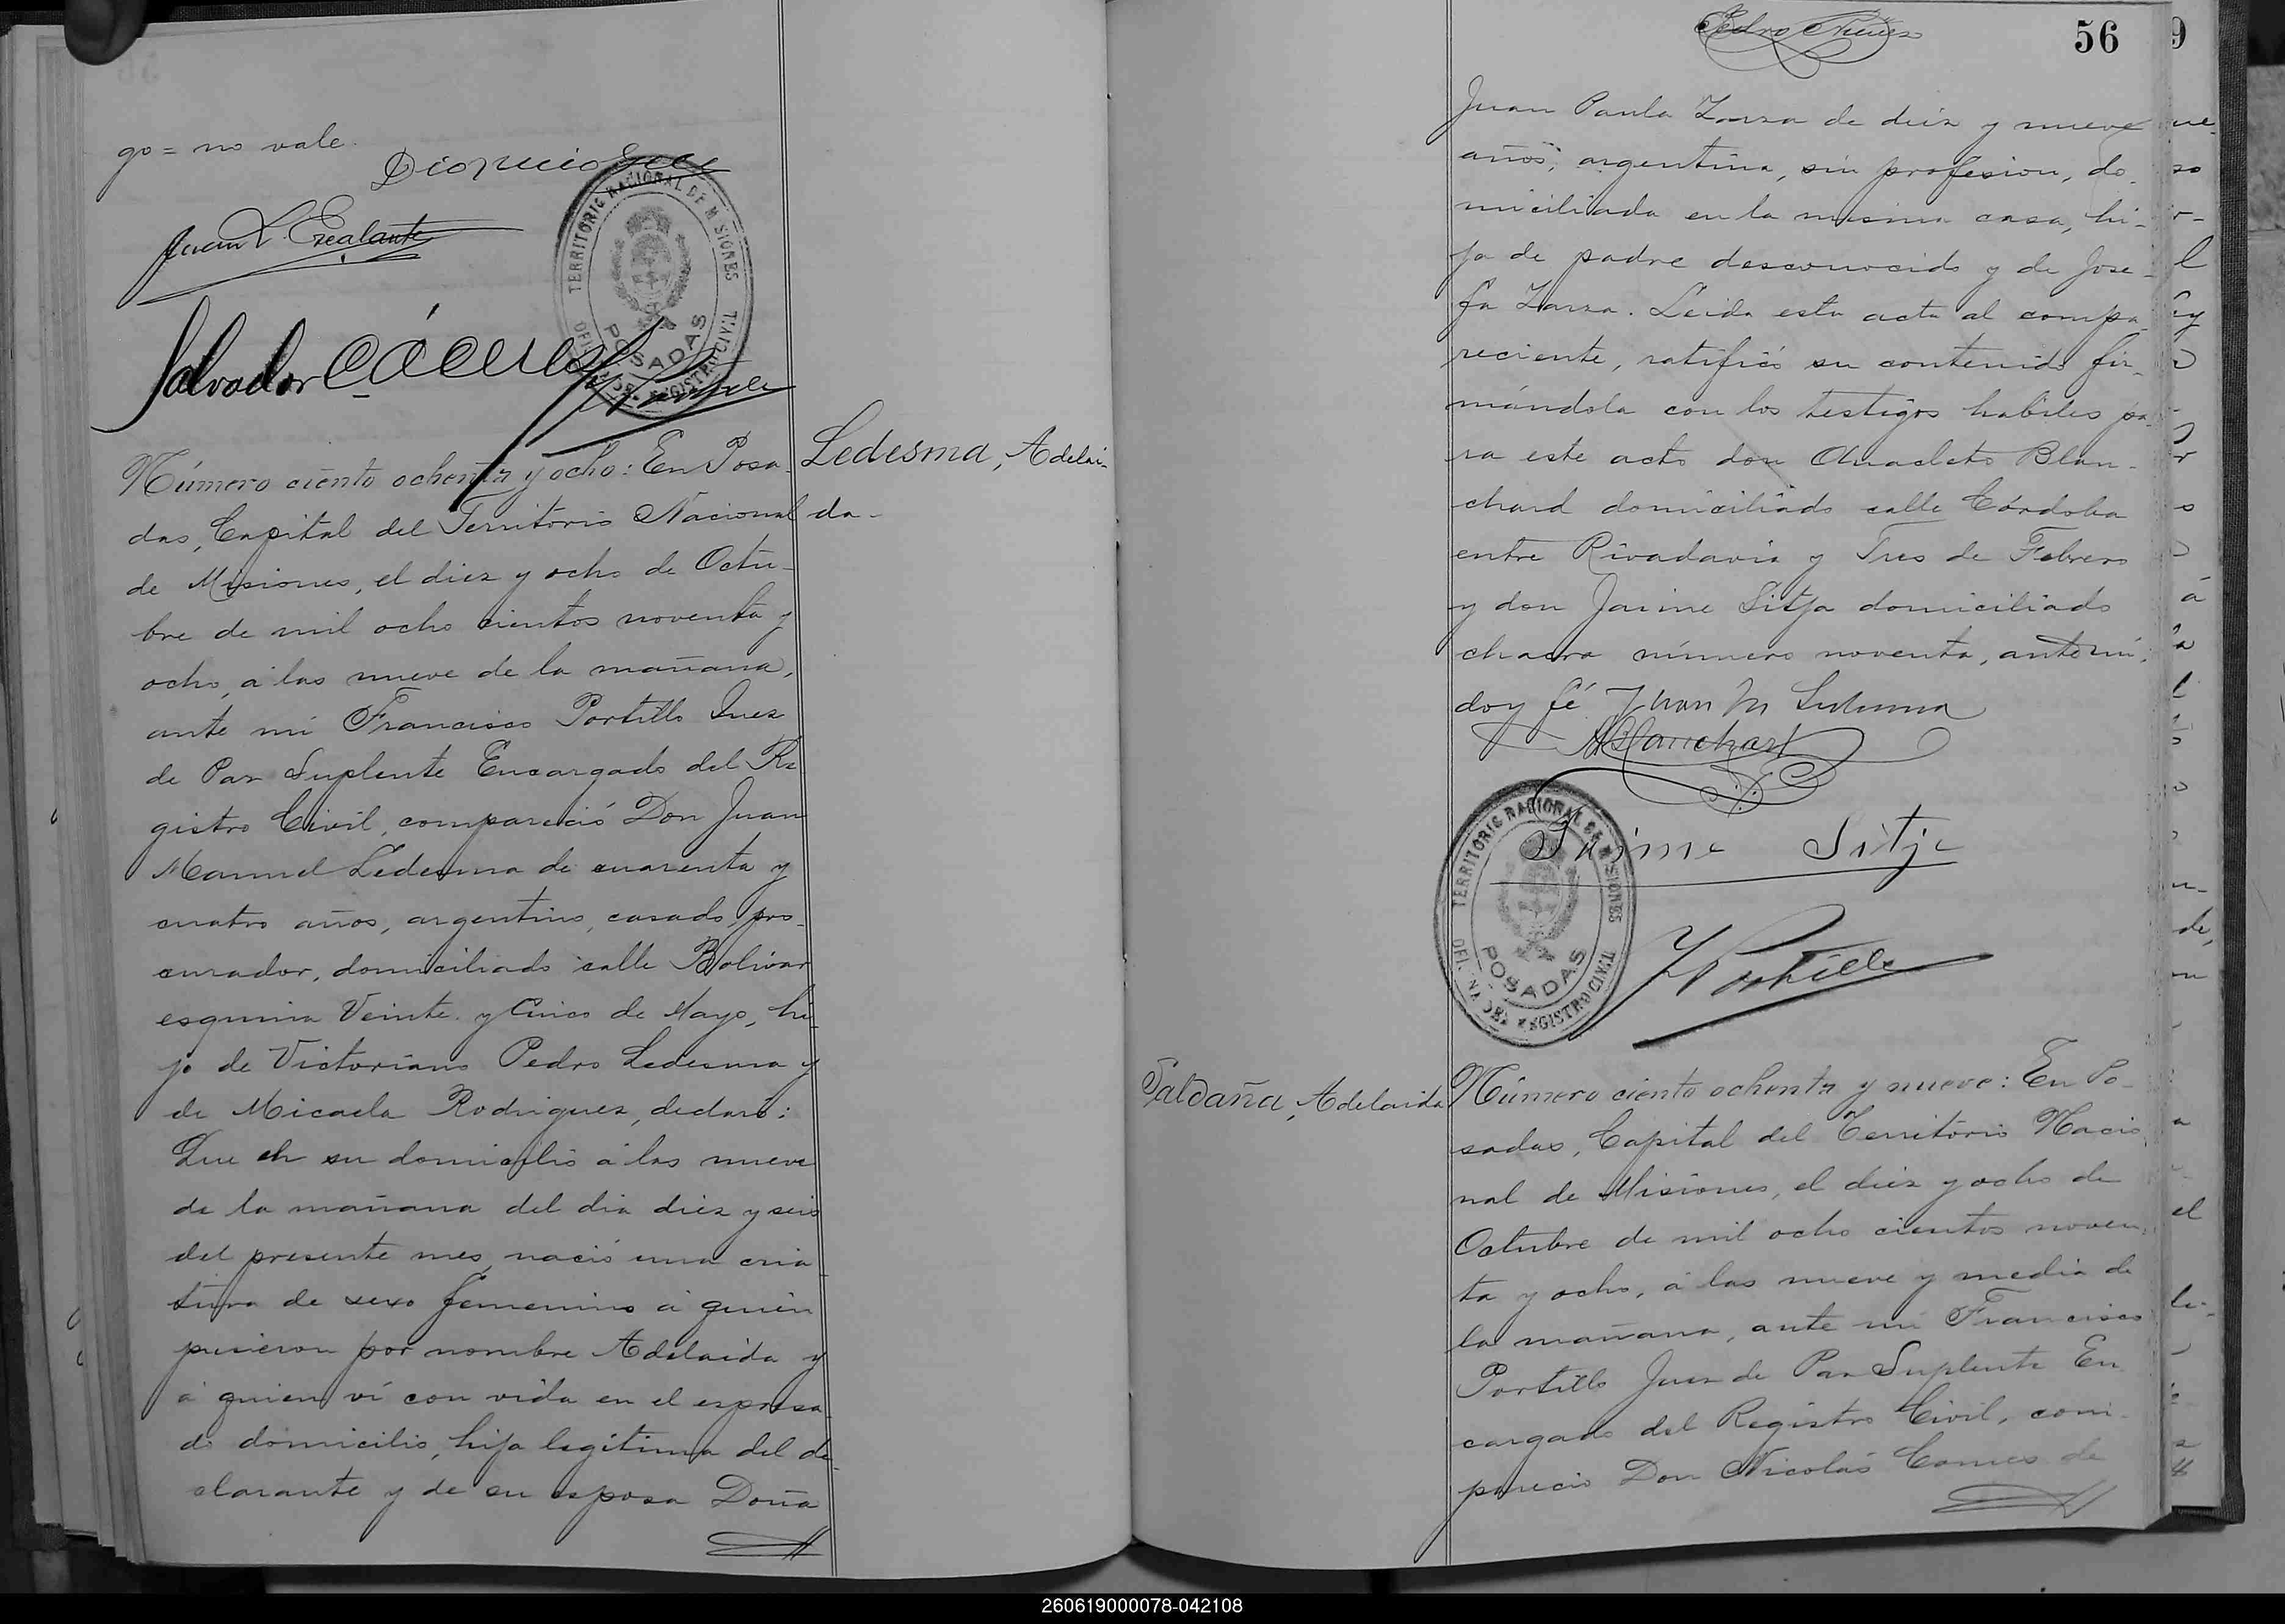 go = no vale.
Dionicio
Juan L. Escalante
Salvador Cáceres
TERRITORIO NACIONAL DE MISIONES
POSADAS
OFICINA DEL REGISTRO CIVIL
Número ciento ochenta y ocho: En Posa-
Ledesma, Adelai-
das, Capital del Territorio Nacional
da-
de Misiones, el diez y ocho de Octu-
bre de mil ocho cientos noventa y
ocho, á las nueve de la mañana,
ante mi Francisco Portillo Juez
de Paz Suplente Encargado del Re
gistro Civil, compareció Don Juan
Manuel Ledesma de cuarenta y
cuatro años, argentino, casado, pro-
curador, domiciliado calle Bolívar
esquina Veinte y Cinco de Mayo, hi-
jo de Victoriano Pedro Ledesma y
de Micaela Rodriguez, declaró:
Que en su domicilio á las nueve
de la mañana del dia diez y seis
del presente mes, nació una cria-
tura de sexo femenino á quien
pusieron por nombre Adelaida y
á quien ví con vida en el espresa-
do domicilio, hija legítima del de-
clarante y de su esposa Doña
56
Juan Paula Zarza de diez y nueve
años, argentina, sin profesion, do-
miciliada en la misma casa, hi-
ja de padre desconocido y de Jose-
fa Zarza. Leida esta acta al compa-
reciente, ratificó su contenido fir-
mándola con los testigos hábiles pa-
ra este acto don Anacleto Blan-
chard domiciliado calle Córdoba
entre Rivadavia y Tres de Febrero
y don Jaime Sitja domiciliado
chacra número noventa, ante mi,
doy fé Juan M Ledesma
ABlanchart
Jaime Sitje
TERRITORIO NACIONAL DE MISIONES
POSADAS
OFICINA DEL REGISTRO CIVIL
F Portillo
Saldaña, Adelaida
Número ciento ochenta y nueve: En Po-
sadas, Capital del Territorio Nacio
nal de Misiones, el diez y ocho de
Octubre de mil ocho cientos noven-
ta y ocho, á las nueve y media de
la mañana, ante mi Francisco
Portillo Juez de Paz Suplente En
cargado del Registro Civil, com-
pareció Don Nicolás Comes de
260619000078-042108